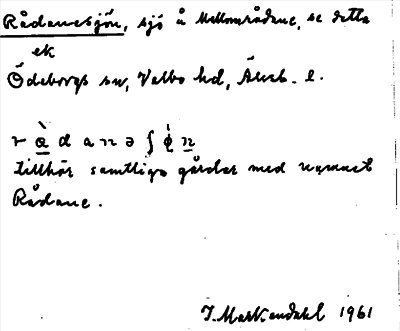 Rådanesjön, sjö å Mellområdane, se detta
ek
Ödeborgs sn, Valbo hd, Älvsb. l.
r a d a n ə ʃ ø n
tillhör samtliga gårdar med namnet
Rådane.
1961